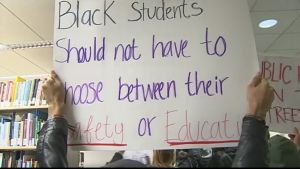 Black Students
Should not have to
choose between their
Safety or Educati
PUBLIC